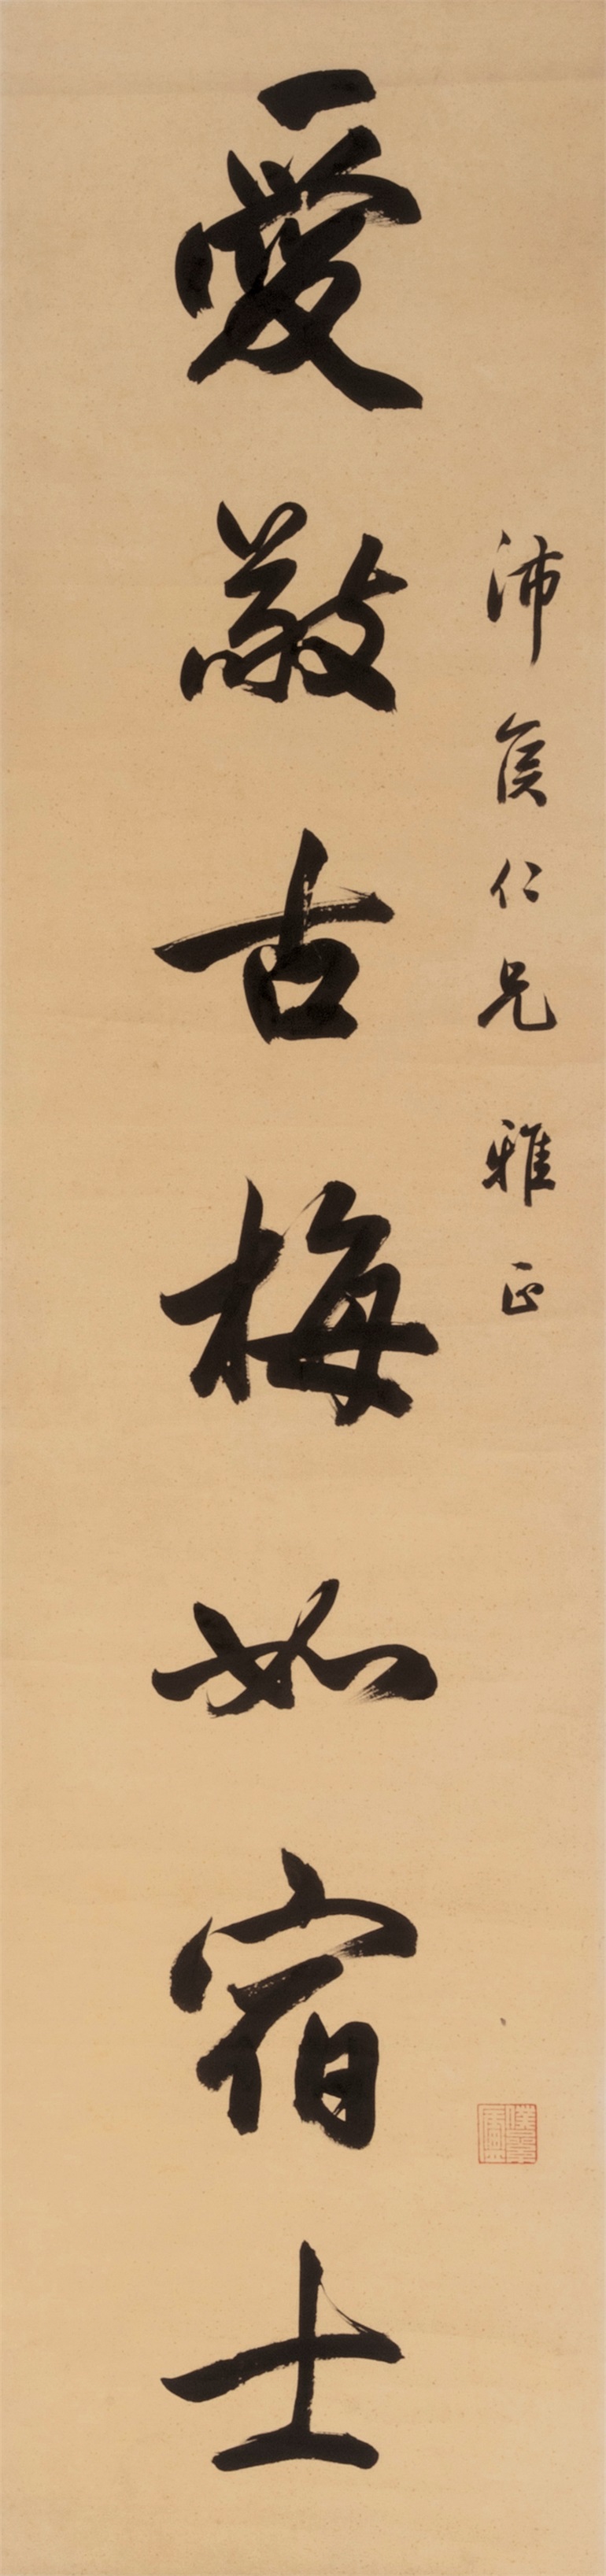 沛侯仁兄 雅正
愛敬古梅如宿士